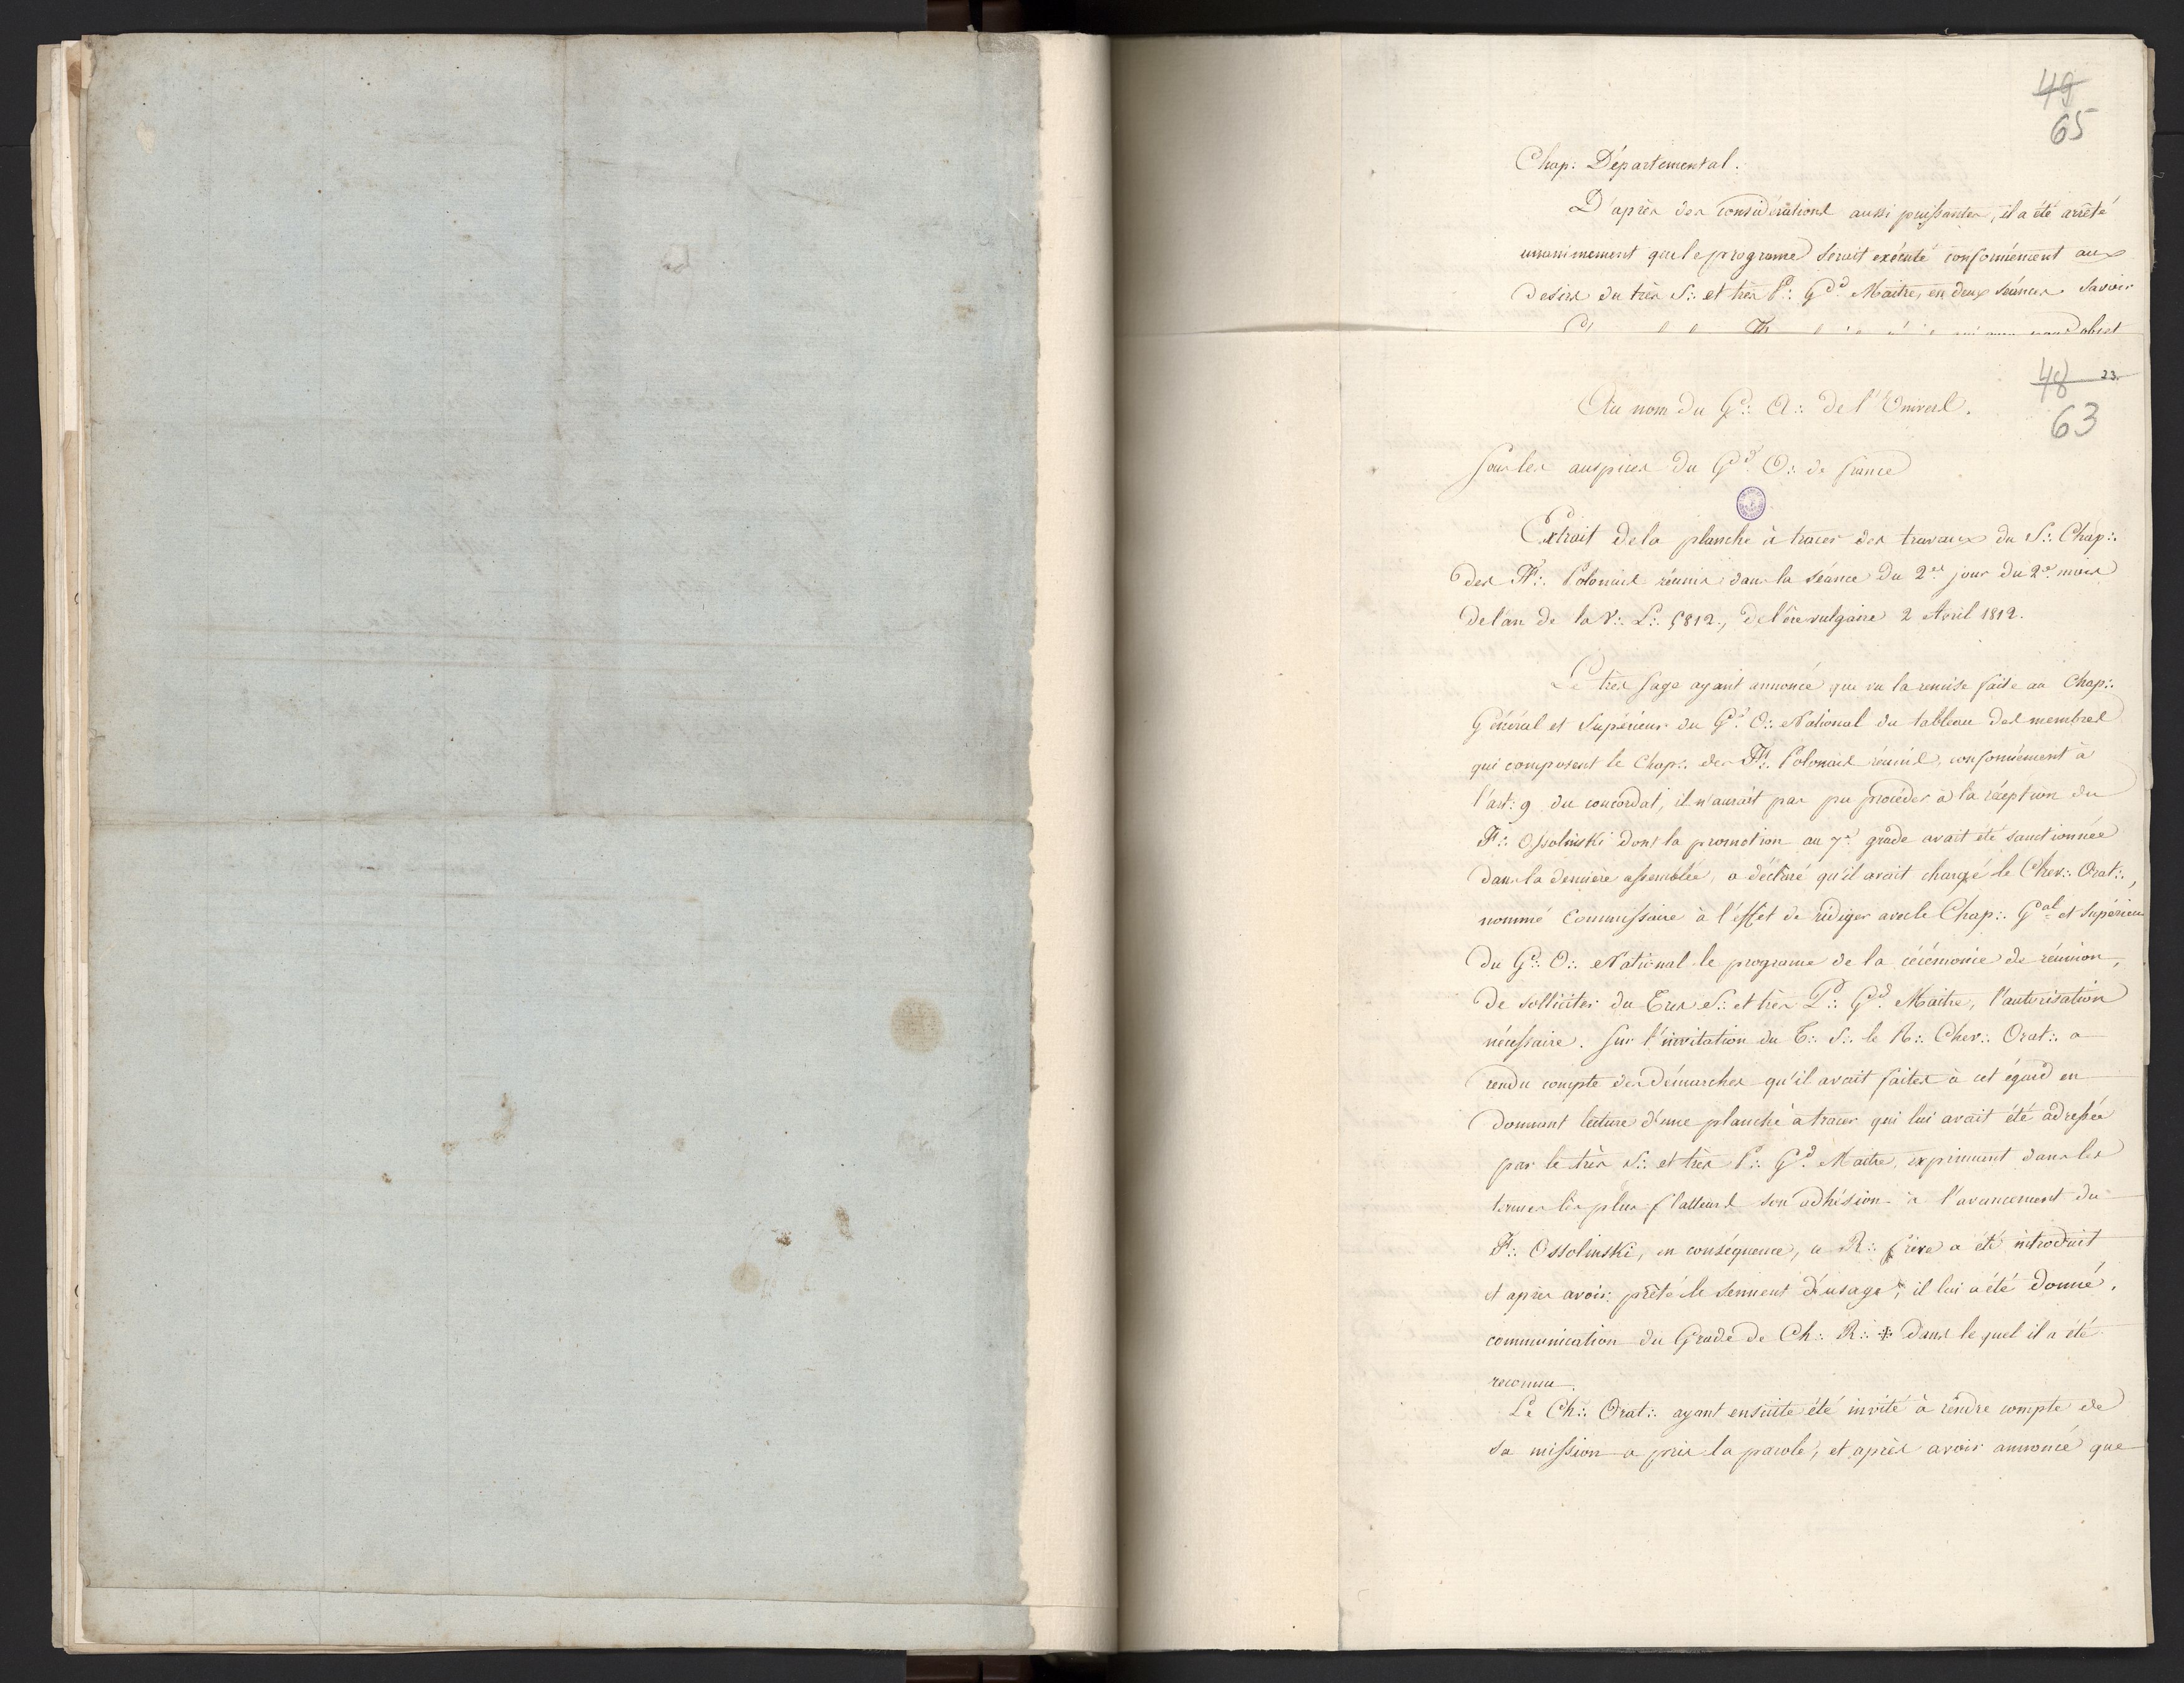 49
65
Chap: Départemental.
D'après des considérations aussi puissantes, il a été arrêté
unanimement que le programe serait exécuté conformément aux
desirs du très S∴ et très P∴ Gd∴ Maitre, en deux séances. Savoir
objet
48 23.
63
Au nom du G∴ A∴ de l'Univers.
Sous les auspices du Gd∴ O∴ de france
Extrait de la planche à tracer des travaux du S∴ Chap∴
des FF∴ Polonais réunis dans la séance du 2d jour du 2d mois
de l'an de la V∴ L∴ 5812., de l'ère vulgaire 2 Avril 1812.
Le très Sage ayant annoncé que vu la remise faite au Chap∴
Général et Supérieur du Gd∴ O∴ National du tableau des membres
qui composent le Chap∴ des FF∴ Polonais réunis, conformément à
l'art: 9 du concordat, il n'aurait pas pu procéder à la réception du
F∴ Ossolinski dont la promotion au 7e grade avait été sanctionnée
dans la dernière assemblée, a déclaré qu'il avait chargé le Chev∴ Orat∴,
nommé Commissaire à l'effet de rédiger avec le Chap∴ Gal et Supérieur
du Gd∴ O∴ National le programe de la cérémonie de réunion,
de solliciter du Très S∴ et très P∴ Gd∴ Maitre, l'autorisation
nécessaire. Sur l'invitation du T∴ S∴ le R∴ Chev∴ Orat∴ a
rendu compte des démarches qu'il avait faites à cet égard en
donnant lecture d'une planche à tracer qui lui avait été adressée
par le très S∴ et très P∴ Gd∴ Maitre, exprimant dans les
termes les plus flatteurs son adhésion à l'avancement du
F∴ Ossolinski, en conséquence, ce R∴ frère a été introduit
et après avoir prêté le serment d'usage, il lui a été donné
communication du Grade de Ch∴ R∴ ✠ dans le quel il a été
reconnu.
Le Ch∴ Orat∴ ayant ensuite été invité à rendre compte de
sa mission a pris la parole, et après avoir annoncé que